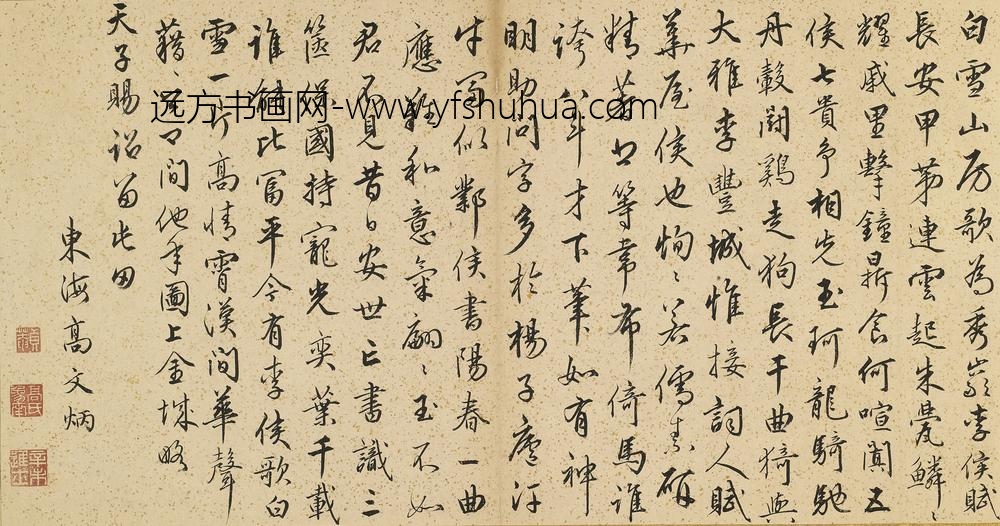 白雪山房歌為秀嵓李侯賦
長安甲第連雲起朱甍鱗〻
耀戚里擊鐘鼎食何喧闐五
侯七貴争相先玉珂龍騎馳
丹轂鬪鷄走狗長干曲猗與
大雅李豐城惟接詞人賦
華屋侯也恂〻若儒素研
精 等韋布倚馬誰
誇八斗才下筆如有神
明助問字多於楊子廬汗
牛富似鄴侯書陽春一曲
應難和意氣翩〻玉不如
君不見昔日安世亡書識三
篋 國持寵光奕葉千載
誰能比富平今有李侯歌白
雪一 高情霄漢間華聲
藉〻 間他年圖上金城略
天子賜詔留此田
東海高文炳
远方书画网-www.yfshuhua.com